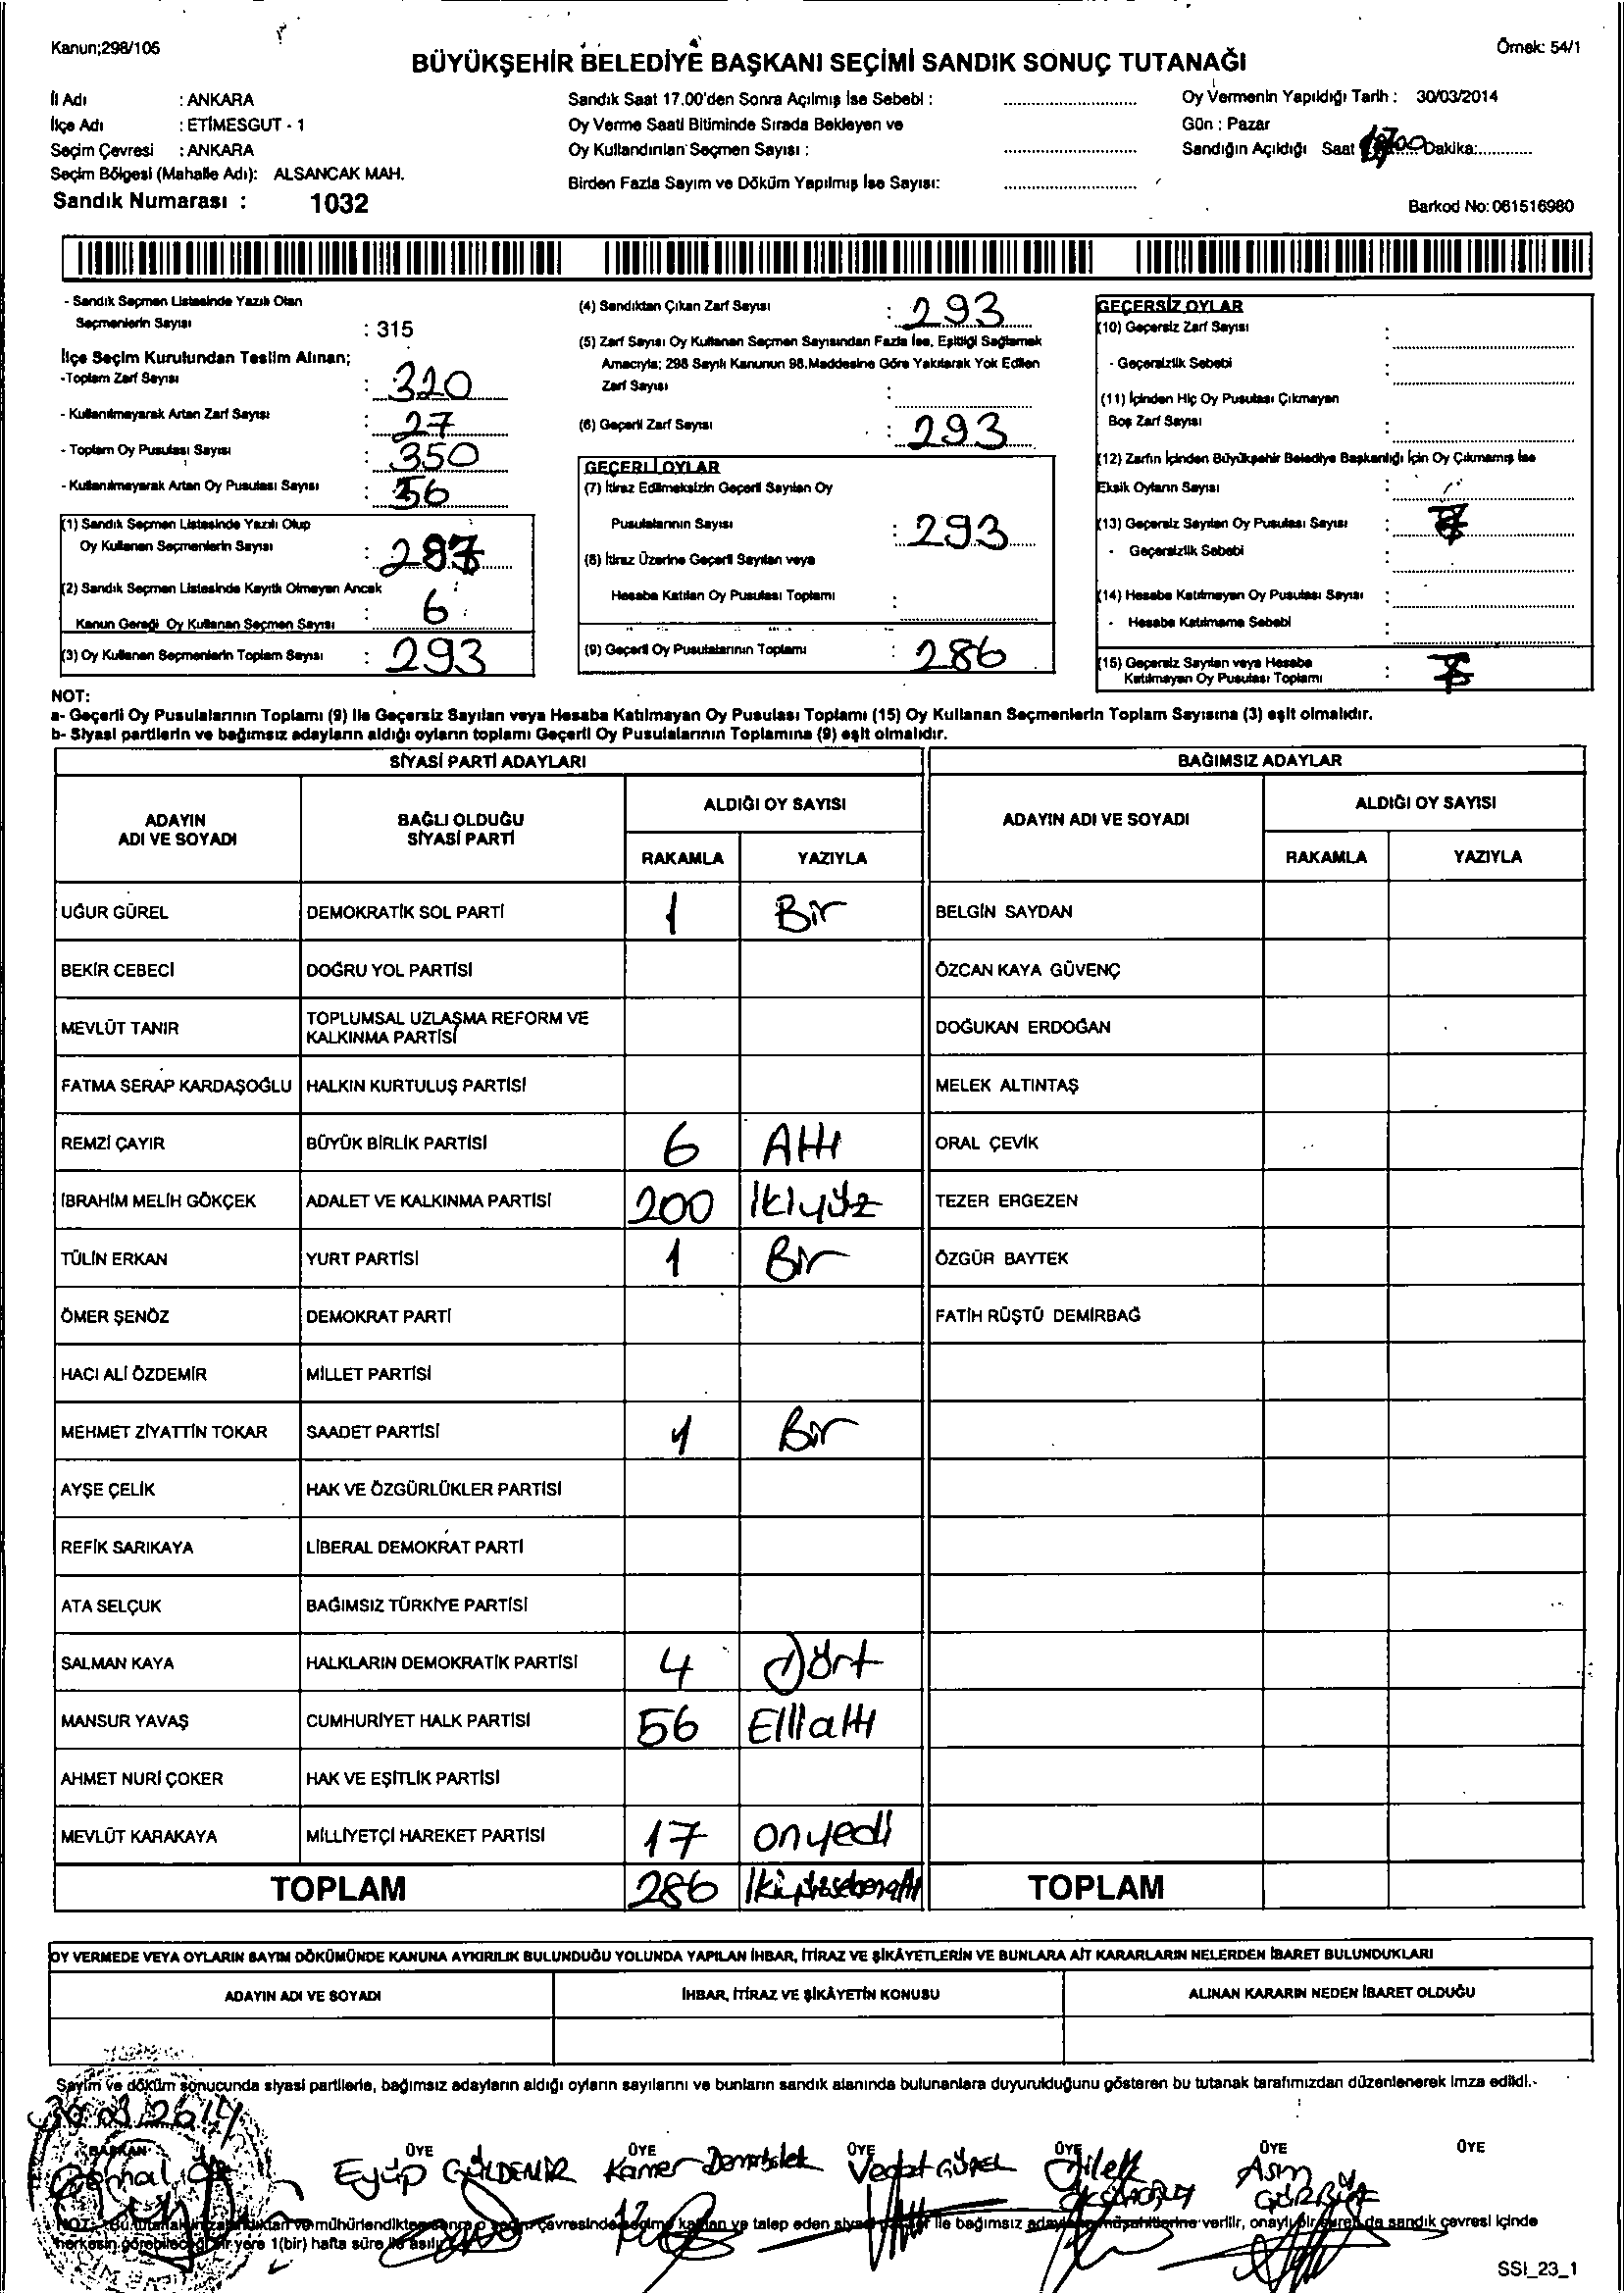 Kanun;298/105
Örnek: 54/1
BÜYÜKŞEHİR BELEDİYE BAŞKANI SEÇİMİ SANDIK SONUÇ TUTANAĞI
İl Adı : ANKARA
İlçe Adı : ETİMESGUT - 1
Seçim Çevresi : ANKARA
Seçim Bölgesi (Mahalle Adı): ALSANCAK MAH.
Sandık Numarası : 1032
Sandık Saat 17.00'den Sonra Açılmış İse Sebebi :
Oy Verme Saati Bitiminde Sırada Bekleyen ve
Oy Kullandırılan Seçmen Sayısı :
Birden Fazla Sayım ve Döküm Yapılmış İse Sayısı:
Oy Vermenin Yapıldığı Tarih : 30/03/2014
Gün : Pazar
Sandığın Açıldığı Saat Dakika:
Barkod No: 061516980
- Sandık Seçmen Listesinde Yazılı Olan
Seçmenlerin Sayısı : 315
İlçe Seçim Kurulundan Teslim Alınan;
-Toplam Zarf Sayısı : 320
- Kullanılmayarak Artan Zarf Sayısı : 27
- Toplam Oy Pusulası Sayısı : 350
- Kullanılmayarak Artan Oy Pusulası Sayısı : 56
(1) Sandık Seçmen Listesinde Yazılı Olup
Oy Kullanan Seçmenlerin Sayısı : 287
(2) Sandık Seçmen Listesinde Kayıtlı Olmayan Ancak
Kanun Gereği Oy Kullanan Seçmen Sayısı : 6
(3) Oy Kullanan Seçmenlerin Toplam Sayısı : 293
(4) Sandıktan Çıkan Zarf Sayısı : 293
(5) Zarf Sayısı Oy Kullanan Seçmen Sayısından Fazla İse, Eşitliği Sağlamak
Amacıyla; 298 Sayılı Kanunun 98.Maddesine Göre Yakılarak Yok Edilen
Zarf Sayısı :
(6) Geçerli Zarf Sayısı : 293
GEÇERLİ OYLAR
(7) İtiraz Edilmeksizin Geçerli Sayılan Oy
Pusulalarının Sayısı : 293
(8) İtiraz Üzerine Geçerli Sayılan veya
Hesaba Katılan Oy Pusulası Toplamı :
(9) Geçerli Oy Pusulalarının Toplamı : 286
GEÇERSİZ OYLAR
(10) Geçersiz Zarf Sayısı :
- Geçersizlik Sebebi :
(11) İçinden Hiç Oy Pusulası Çıkmayan
Boş Zarf Sayısı :
(12) Zarfın İçinden Büyükşehir Belediye Başkanlığı İçin Oy Çıkmamış İse
Eksik Oyların Sayısı :
(13) Geçersiz Sayılan Oy Pusulası Sayısı :
- Geçersizlik Sebebi :
(14) Hesaba Katılmayan Oy Pusulası Sayısı :
- Hesaba Katılmama Sebebi :
(15) Geçersiz Sayılan veya Hesaba
Katılmayan Oy Pusulası Toplamı :
NOT:
a- Geçerli Oy Pusulalarının Toplamı (9) ile Geçersiz Sayılan veya Hesaba Katılmayan Oy Pusulası Toplamı (15) Oy Kullanan Seçmenlerin Toplam Sayısına (3) eşit olmalıdır.
b- Siyasi partilerin ve bağımsız adayların aldığı oyların toplamı Geçerli Oy Pusulalarının Toplamına (9) eşit olmalıdır.
SİYASİ PARTİ ADAYLARI BAĞIMSIZ ADAYLAR
ADAYIN ADI VE SOYADI BAĞLI OLDUĞU SİYASİ PARTİ ALDIĞI OY SAYISI ADAYIN ADI VE SOYADI ALDIĞI OY SAYISI
RAKAMLA YAZIYLA RAKAMLA YAZIYLA
UĞUR GÜREL DEMOKRATİK SOL PARTİ 1 Bir BELGİN SAYDAN
BEKİR CEBECİ DOĞRU YOL PARTİSİ ÖZCAN KAYA GÜVENÇ
MEVLÜT TANIR TOPLUMSAL UZLAŞMA REFORM VE KALKINMA PARTİSİ DOĞUKAN ERDOĞAN
FATMA SERAP KARDAŞOĞLU HALKIN KURTULUŞ PARTİSİ MELEK ALTINTAŞ
REMZİ ÇAYIR BÜYÜK BİRLİK PARTİSİ 6 Altı ORAL ÇEVİK
İBRAHİM MELİH GÖKÇEK ADALET VE KALKINMA PARTİSİ 200 İkiyüz TEZER ERGEZEN
TÜLİN ERKAN YURT PARTİSİ 1 Bir ÖZGÜR BAYTEK
ÖMER ŞENÖZ DEMOKRAT PARTİ FATİH RÜŞTÜ DEMİRBAĞ
HACI ALİ ÖZDEMİR MİLLET PARTİSİ
MEHMET ZİYATTİN TOKAR SAADET PARTİSİ 1 Bir
AYŞE ÇELİK HAK VE ÖZGÜRLÜKLER PARTİSİ
REFİK SARIKAYA LİBERAL DEMOKRAT PARTİ
ATA SELÇUK BAĞIMSIZ TÜRKİYE PARTİSİ
SALMAN KAYA HALKLARIN DEMOKRATİK PARTİSİ 4 Dört
MANSUR YAVAŞ CUMHURİYET HALK PARTİSİ 56 Elllaltı
AHMET NURİ ÇOKER HAK VE EŞİTLİK PARTİSİ
MEVLÜT KARAKAYA MİLLİYETÇİ HAREKET PARTİSİ 17 onyedi
TOPLAM 286 TOPLAM
OY VERMEDE VEYA OYLARIN SAYIM DÖKÜMÜNDE KANUNA AYKIRILIK BULUNDUĞU YOLUNDA YAPILAN İHBAR, İTİRAZ VE ŞİKÂYETLERİN VE BUNLARA AİT KARARLARIN NELERDEN İBARET BULUNDUKLARI
ADAYIN ADI VE SOYADI İHBAR, İTİRAZ VE ŞİKÂYETİN KONUSU ALINAN KARARIN NEDEN İBARET OLDUĞU
Sayım ve döküm sonucunda siyasi partilerle, bağımsız adayların aldığı oyların sayılarını ve bunların sandık alanında bulunanlara duyurulduğunu gösteren bu tutanak tarafımızdan düzenlenerek imza edildi.
BAŞKAN ÜYE ÜYE ÜYE ÜYE ÜYE ÜYE
Eyüp GÜLDEMİR Kamer Demirbilek Vedat GÜREL Dilek Asım
ile bağımsız verilir, sandık çevresi içinde
yere 1(bir) hafta süre
SSİ_23_1